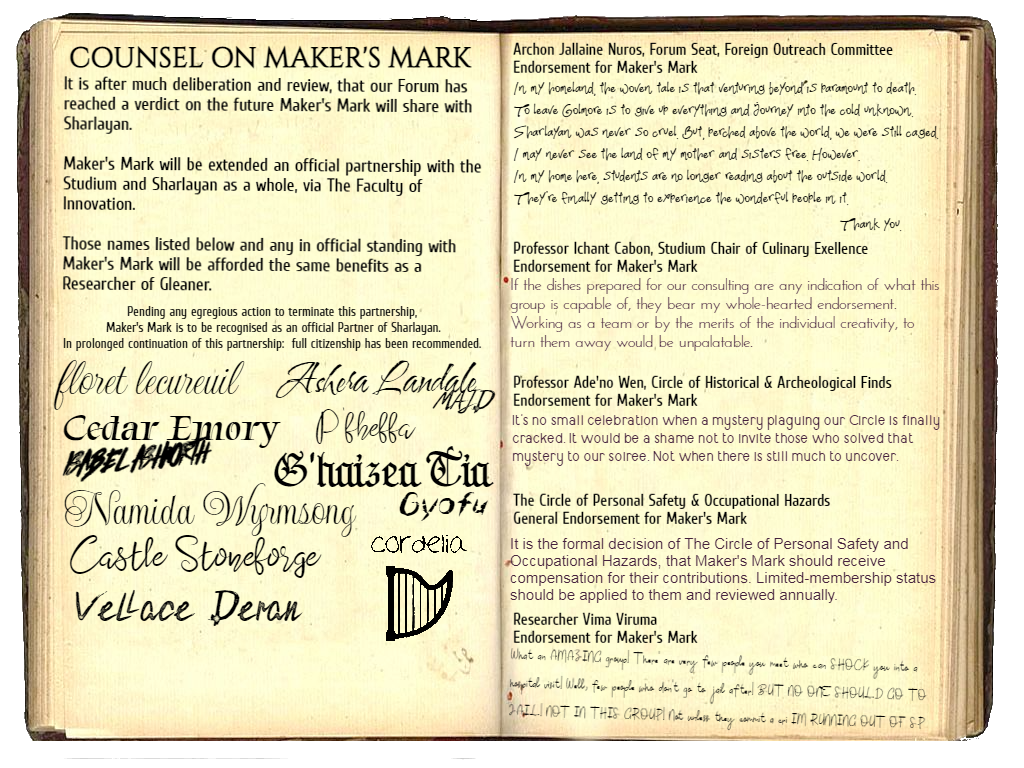 COUNSEL ON MAKER'S MARK
It is after much deliberation and review, that our Forum has
reached a verdict on the future Maker's Mark will share with
Sharlayan.
Maker's Mark will be extended an official partnership with the
Studium and Sharlayan as a whole, via The Faculty of
Innovation.
Those names listed below and any in official standing with
Maker's Mark will be afforded the same benefits as a
Researcher of Gleaner.
Pending any egregious action to terminate this partnership,
Maker's Mark is to be recognised as an official Partner of Sharlayan.
In prolonged continuation of this partnership: full citizenship has been recommended.
floret lecureuil
Ashera Landale
MAJD
Cedar Emory
Pfheffa
BABEL ASHWORTH
G'haizea Tia
Namida Wyrmsong
Gyofu
Castle Stoneforge
cordelia
Vellace Deran
Archon Jallaine Nuros, Forum Seat, Foreign Outreach Committee
Endorsement for Maker's Mark
In my homeland, the woven tale is that venturing beyond is paramount to death.
To leave Golmore is to give up everything and journey into the cold unknown.
Sharlayan was never so cruel. But, perched above the world, we were still caged.
I may never see the land of my mother and sisters free. However.
In my home here, students are no longer reading about the outside world.
They're finally getting to experience the wonderful people in it.
Thank you.
Professor Ichant Cabon, Studium Chair of Culinary Exellence
Endorsement for Maker's Mark
If the dishes prepared for our consulting are any indication of what this
group is capable of, they bear my whole-hearted endorsement.
Working as a team or by the merits of the individual creativity, to
turn them away would be unpalatable.
Professor Ade'no Wen, Circle of Historical & Archeological Finds
Endorsement for Maker's Mark
It's no small celebration when a mystery plaguing our Circle is finally
cracked. It would be a shame not to invite those who solved that
mystery to our soiree. Not when there is still much to uncover.
The Circle of Personal Safety & Occupational Hazards
General Endorsement for Maker's Mark
It is the formal decision of The Circle of Personal Safety and
Occupational Hazards, that Maker's Mark should receive
compensation for their contributions. Limited-membership status
should be applied to them and reviewed annually.
Researcher Vima Viruma
Endorsement for Maker's Mark
What an AMAZING group! There are very few people you meet who can SHOCK you into a
hospital visit! Well, few people who don't go to jail after! BUT NO ONE SHOULD GO TO
JAIL! NOT IN THIS GROUP! Not unless they commit a cri IM RUNNING OUT OF SP